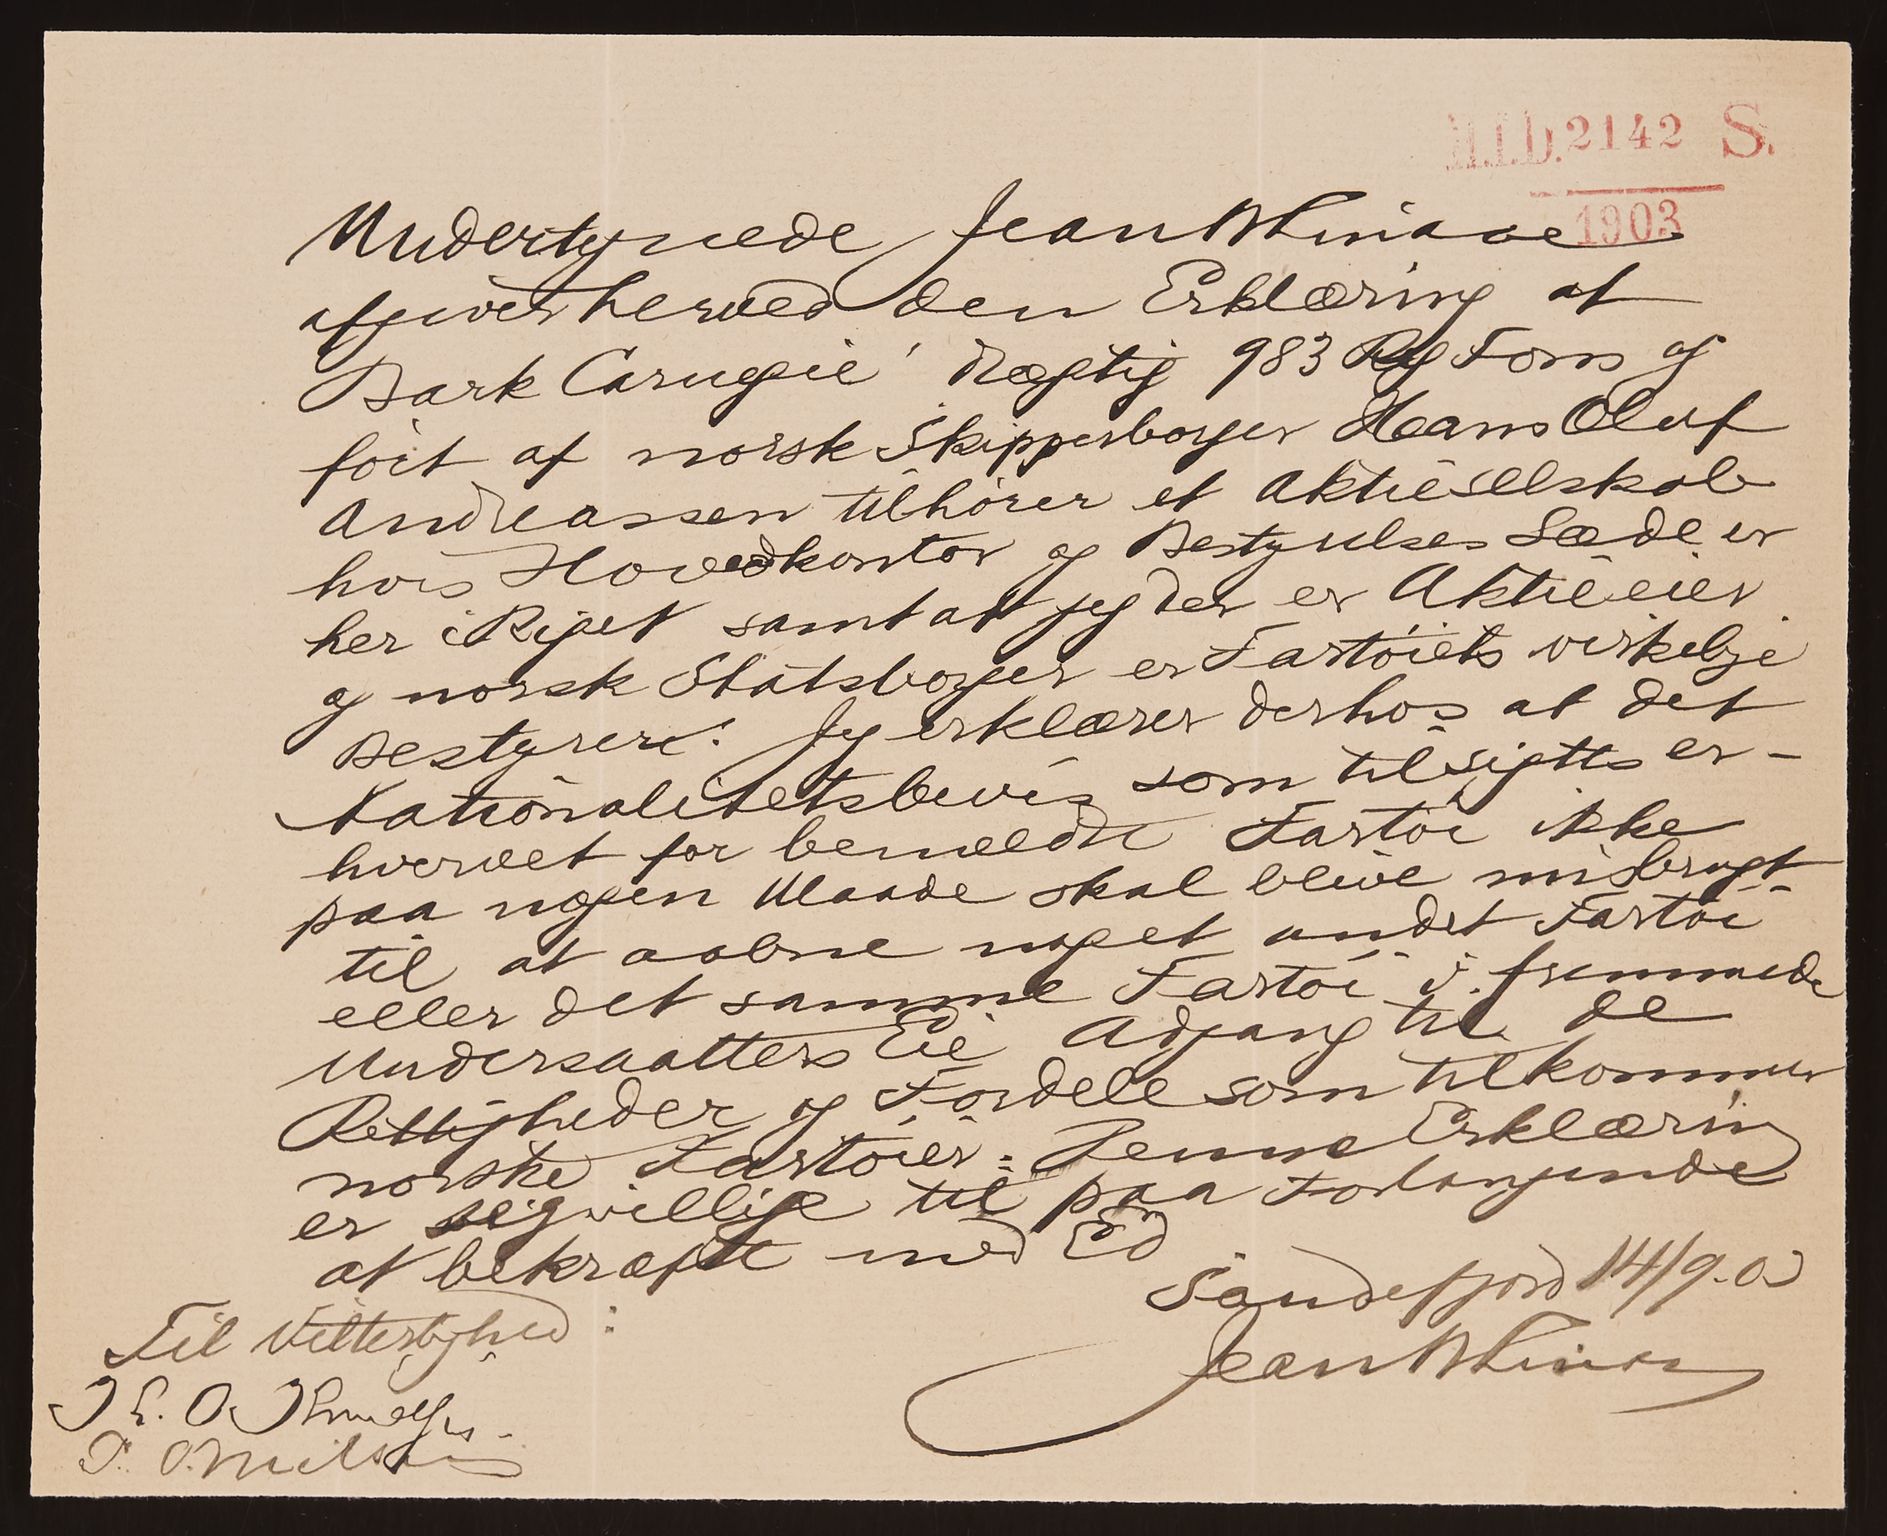 M.I.D. 2142 S.
1903
Undertegnede Jean
afgiver herved den Erklæring at
Bark Carnegie' drægtig 983 Reg Tons og
ført af norsk Skipperborger Hans Oluf
Andreassen tilhører et Aktieselskab
hvis Hovedkontor og Bestyrelses Sæde er
her i Riget samt at jeg der er Aktieeier
og norsk Statsborger er Fartøiets virkelige
Bestyrer. Jeg erklærer derhos at det
Nationalitetsbevis som tilsigtes er-
hvervet for benævdte Fartøi ikke
paa nogen Maade skal blive misbrugt
til at aabne noget andet Fartøi
eller det samme Fartøi i fremmede
Undersaatters Eie Adgang til de
Rettigheder og Fordele som tilkommer
norske Fartøier. Denne Erklæring
er jeg villige til paa Forlangende
at bekræfte med Ed
Sandefjord 14/9.03
Jean
Til Vitterlighed: